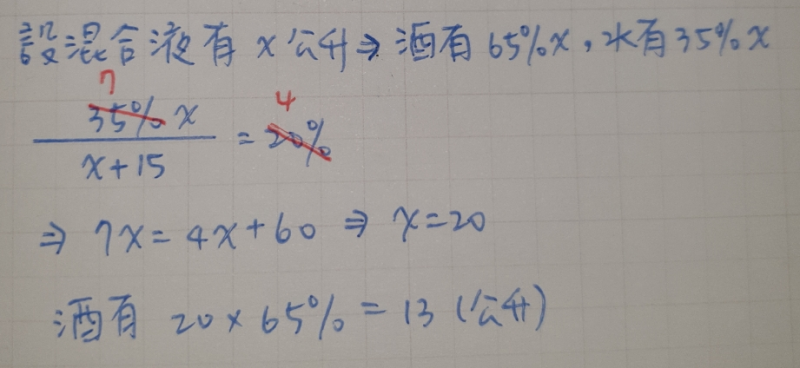 設混合液有 x 公升 ⇒ 酒有 65%x，水有 35%x
7 4
35% x / x+15 = 20%
⇒ 7x = 4x + 60 ⇒ x = 20
酒有 20 × 65% = 13 (公升)